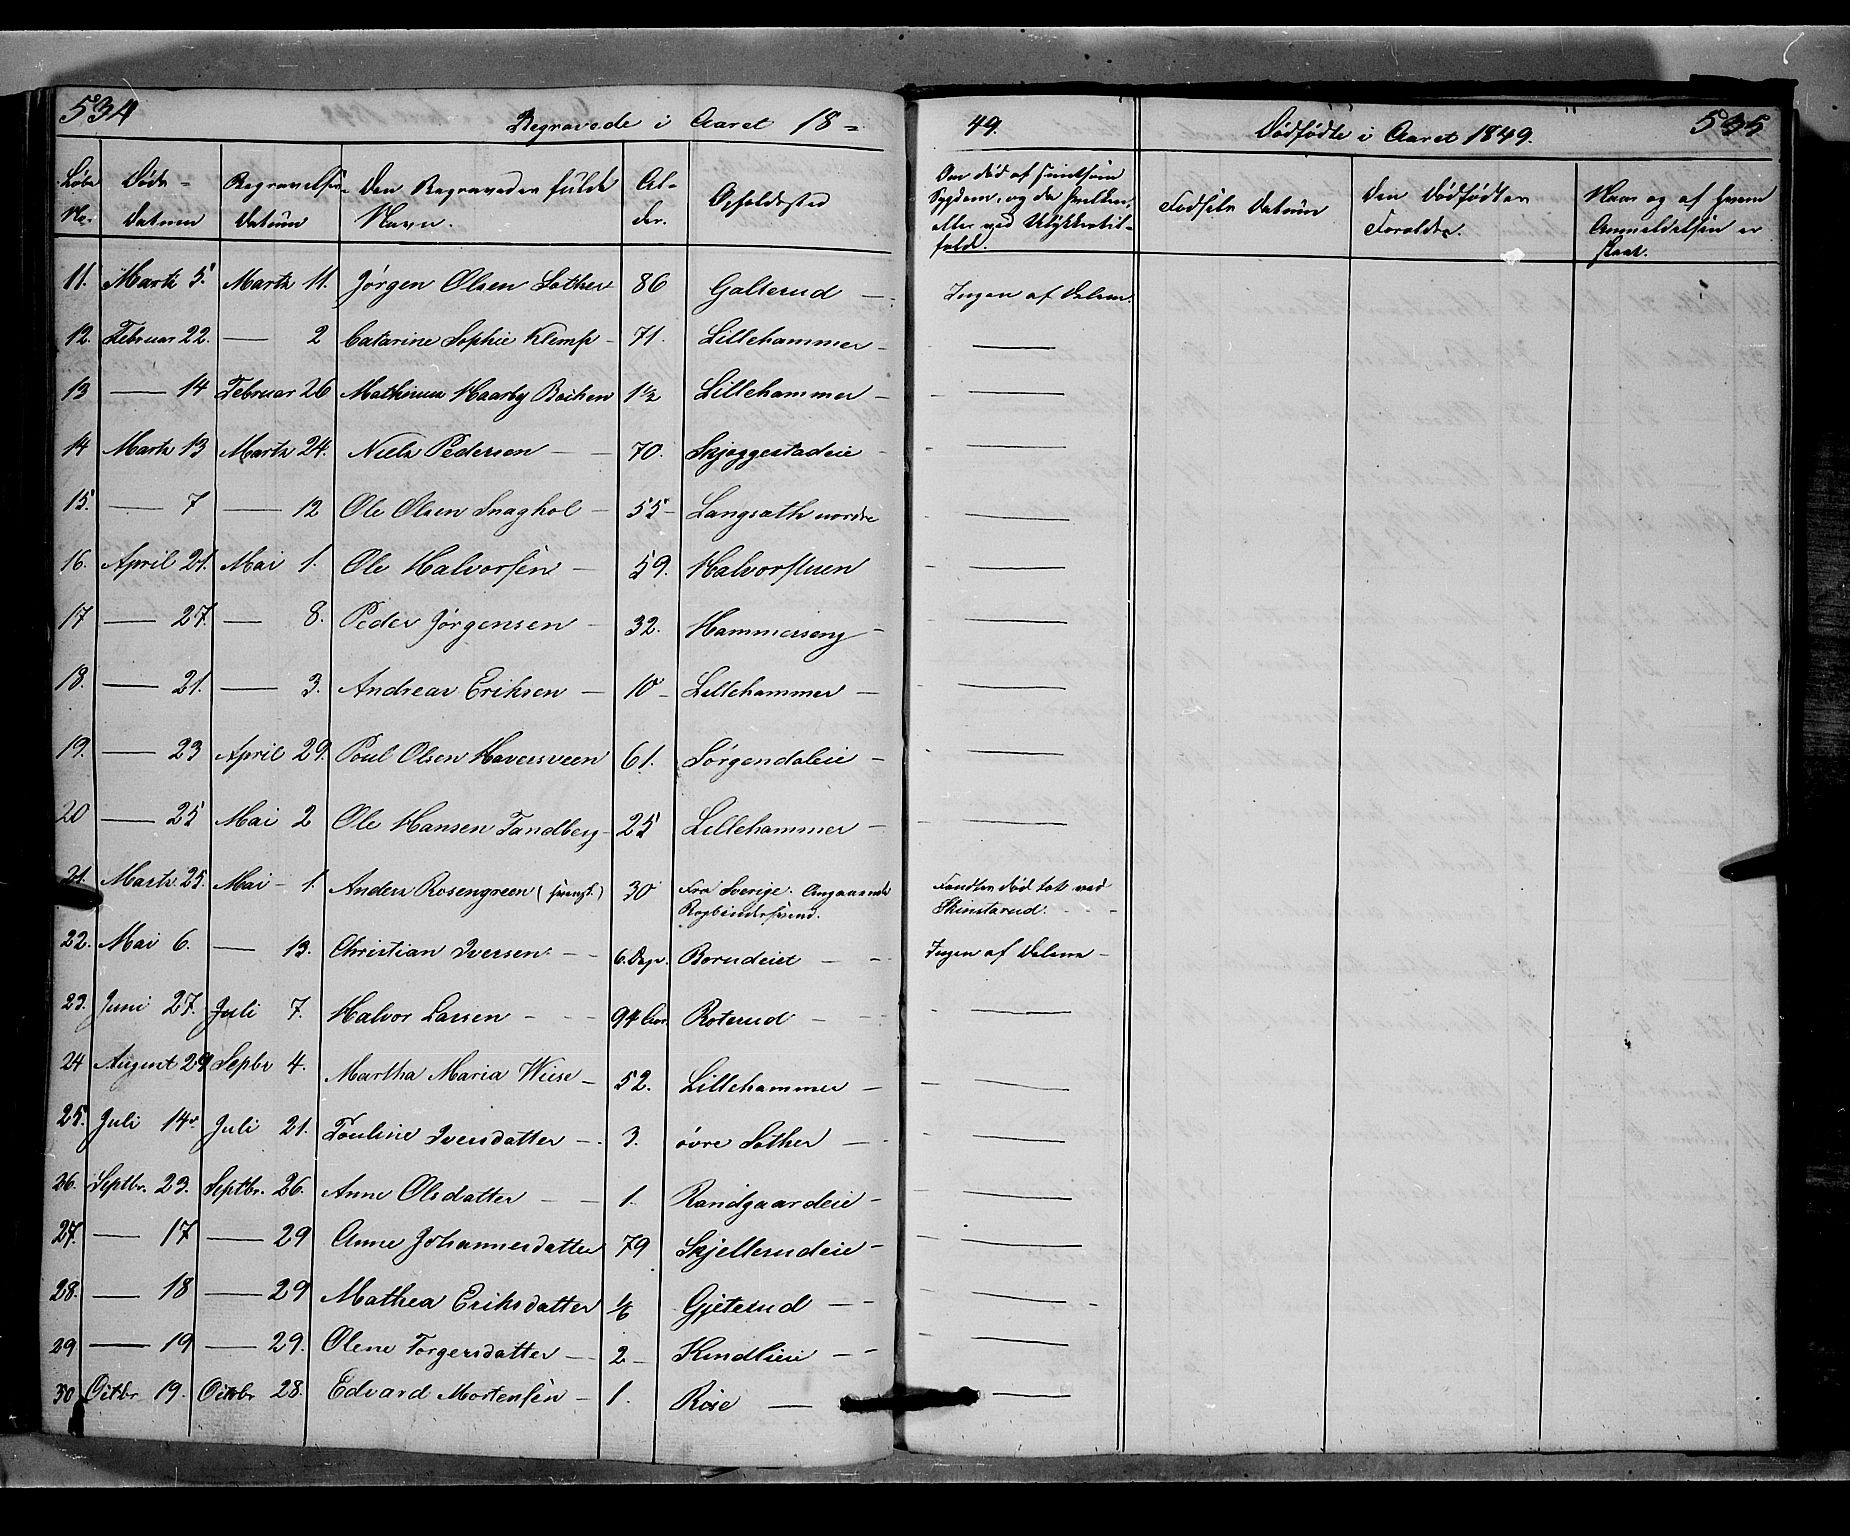 534
Begravede i Aaret 18 =
49.
Dødfødte i Aaret 1849.
535
Løbe No. | Døds-Datum | Begravelses Datum | Den Begravedes fulde Navn. | Al-der. | Opholdssted | Om død af smitsom Sygdom, og da hvilken, eller ved Ulykkestilfælde. | Fødsels Datum | Den Dødfødtes Forældre. | Naar og af hvem Anmeldelsen er skeet.
11. Marts 5. Marts 11. Jørgen Olsen Sother 86 Galterud — Ingen af Delene
12. Februar 22. — 2 Catarine Sophie Klemp - 71. Lillehammer - —
13 — 14 Februar 26 Mathinus Haarby Bochen 1½ Lillehammer - —
14 Marts 13 Marts 24. Niels Pedersen — 70. Skjæggestadeie —
15. — 7 — 12 Ole Olsen Snaghol — 55 - Langsæth nordre —
16. April 21. Mai 1. Ole Halvorsen — 59. Halvorstuen —
17 — 27. — 8. Peder Jørgensen — 32. Hammerseng —
18. — 21. — 3. Andreas Eriksen — 10 - Lillehammer — —
19. — 23 April 29. Poul Olsen Haversveen 61. Sørgendaleie - —
20 — 25 Mai 2 Ole Hansen Tandberg - 25 Lillehammer - —
21. Marts 25. Mai - 1. Anders Rosengreen (svensk) 30 Fra Sverige. Omgaaende Rygbindersvend. Fandtes død tæt ved Skinstarud.
22. Mai 6. — 13. Christian Iversen - - 6 Dage. Borudeiet — Ingen af Delene -
23. Juni 27. Juli 7. Halvor Larsen - - 94 Aar. Roterud — —
24 August 29 Septbr 4. Martha Maria Wiese - 52. Lillehammer - —
25. Juli 14. Juli 21. Pouline Iversdatter - 3. øvre Sother — —
26. Septbr. 23. Septbr. 26. Anne Olsdatter — 1. Randgaardeie - —
27. — 17 — 29 Anne Johannesdatter 79 Skjellerudeie - —
28. — 18 — 29 Mathea Eriksdatter Gjæterud — —
29 — 19 — 29. Olene Torgersdatter — 2 - Kindlieie — —
30 Octbr 19. Octbr 28. Edvard Mortensen - 1. Rise — —